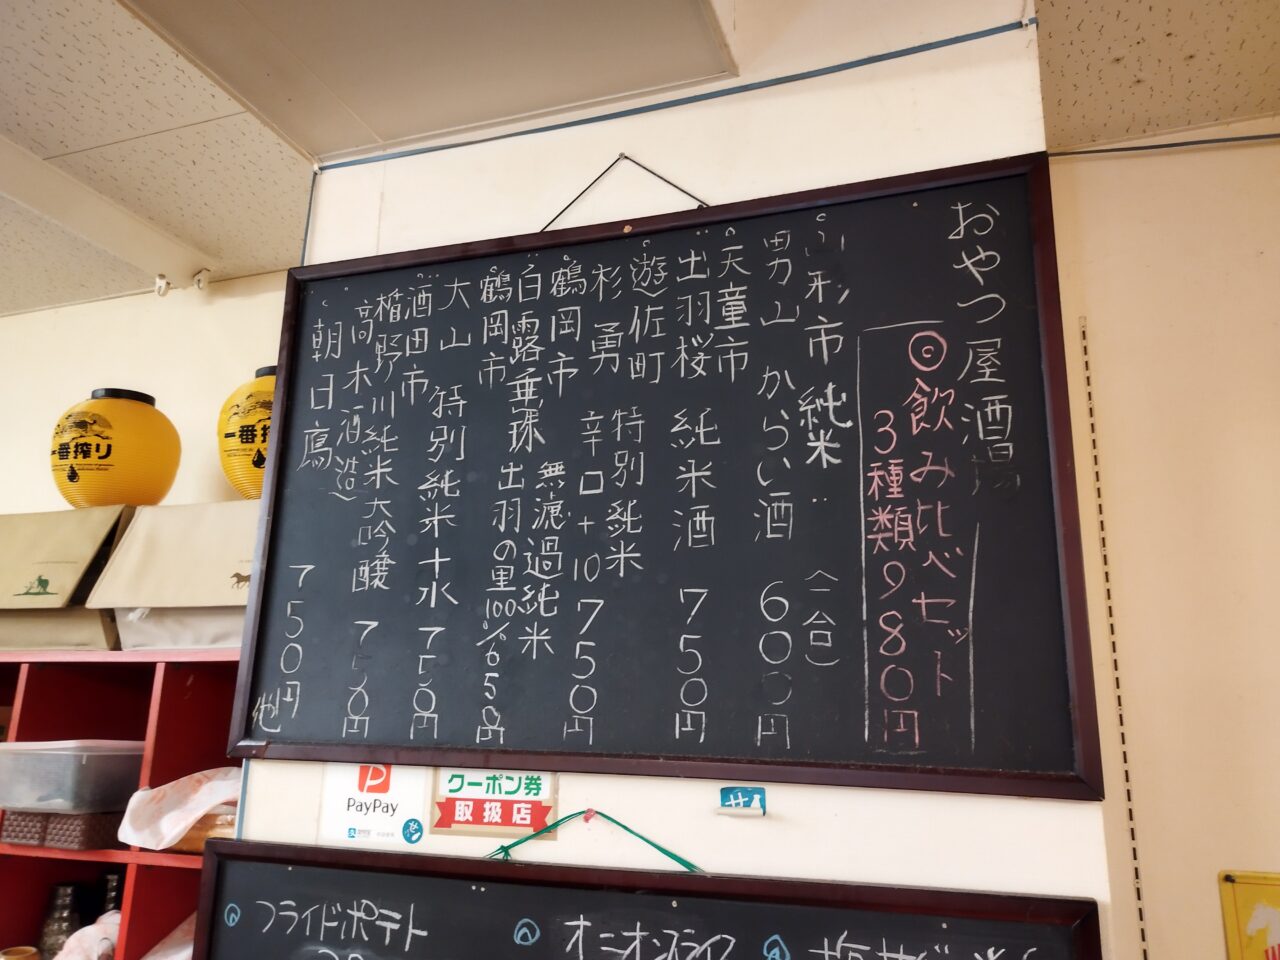 おやつ屋酒場
◎飲み比べセット
3種類980円
山形市 純米‥(一合)
男山 からい酒 600円
天童市
出羽桜 純米酒 750円
遊佐町 特別純米
杉勇 辛口+10 750円
鶴岡市 無濾過純米
白露垂珠 出羽の里100% 650円
鶴岡市
大山 特別純米十水 750円
酒田市
楯野川純米大吟醸 750円
高木酒造
朝日鷹 750円
他
一番搾り
一番搾
PayPay
クーポン券
取扱店
フライドポテト
オニオンスライス